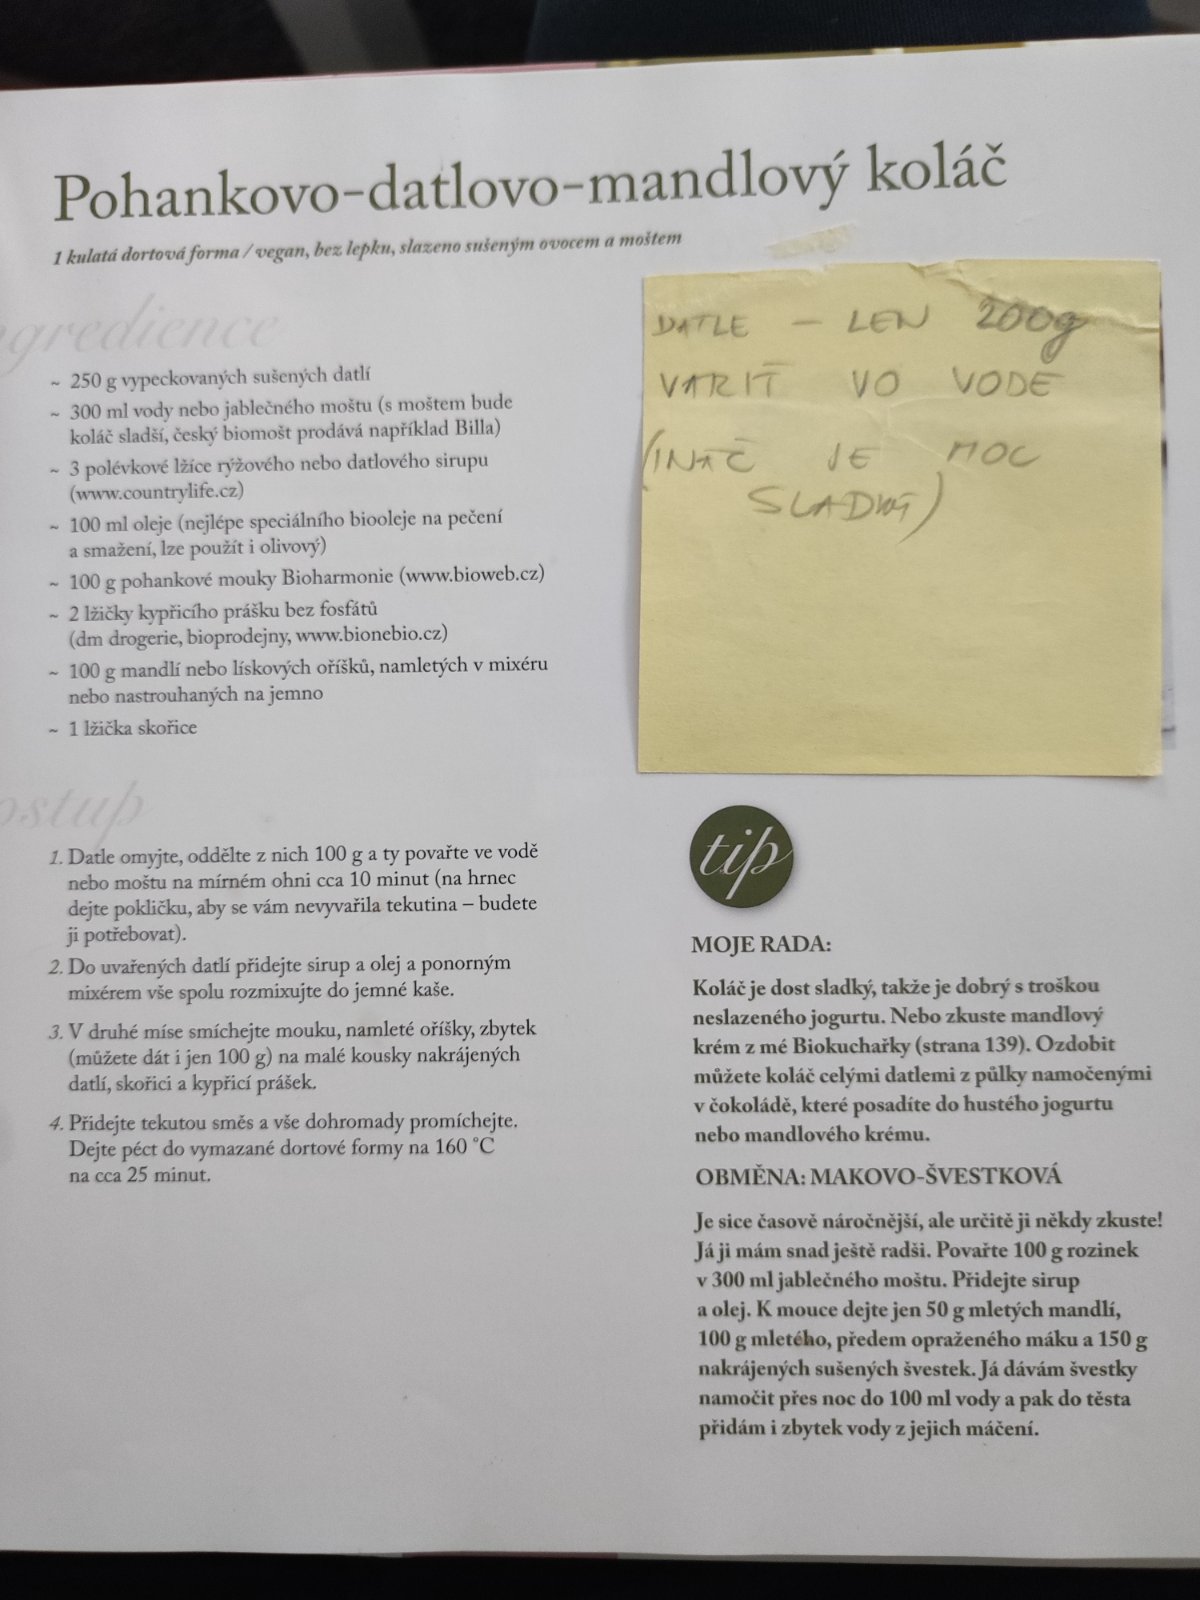 Pohankovo-datlovo-mandlový koláč
1 kulatá dortová forma / vegan, bez lepku, slazeno sušeným ovocem a moštem
ngredience
~ 250 g vypeckovaných sušených datlí
~ 300 ml vody nebo jablečného moštu (s moštem bude
koláč sladší, český biomošt prodává například Billa)
~ 3 polévkové lžíce rýžového nebo datlového sirupu
(www.countrylife.cz)
~ 100 ml oleje (nejlépe speciálního biooleje na pečení
a smažení, lze použít i olivový)
~ 100 g pohankové mouky Bioharmonie (www.bioweb.cz)
~ 2 lžičky kypřicího prášku bez fosfátů
(dm drogerie, bioprodejny, www.bionebio.cz)
~ 100 g mandlí nebo lískových oříšků, namletých v mixéru
nebo nastrouhaných na jemno
~ 1 lžička skořice
ostup
1. Datle omyjte, oddělte z nich 100 g a ty povařte ve vodě
nebo moštu na mírném ohni cca 10 minut (na hrnec
dejte pokličku, aby se vám nevyvařila tekutina – budete
ji potřebovat).
2. Do uvařených datlí přidejte sirup a olej a ponorným
mixérem vše spolu rozmixujte do jemné kaše.
3. V druhé míse smíchejte mouku, namleté oříšky, zbytek
(můžete dát i jen 100 g) na malé kousky nakrájených
datlí, skořici a kypřicí prášek.
4. Přidejte tekutou směs a vše dohromady promíchejte.
Dejte péct do vymazané dortové formy na 160 °C
na cca 25 minut.
DATLE – LEN 200g
VARIŤ VO VODE
(INAČ JE MOC
SLADKÝ)
tip
MOJE RADA:
Koláč je dost sladký, takže je dobrý s troškou
neslazeného jogurtu. Nebo zkuste mandlový
krém z mé Biokuchařky (strana 139). Ozdobit
můžete koláč celými datlemi z půlky namočenými
v čokoládě, které posadíte do hustého jogurtu
nebo mandlového krému.
OBMĚNA: MAKOVO-ŠVESTKOVÁ
Je sice časově náročnější, ale určitě ji někdy zkuste!
Já ji mám snad ještě radši. Povařte 100 g rozinek
v 300 ml jablečného moštu. Přidejte sirup
a olej. K mouce dejte jen 50 g mletých mandlí,
100 g mletého, předem opraženého máku a 150 g
nakrájených sušených švestek. Já dávám švestky
namočit přes noc do 100 ml vody a pak do těsta
přidám i zbytek vody z jejich máčení.